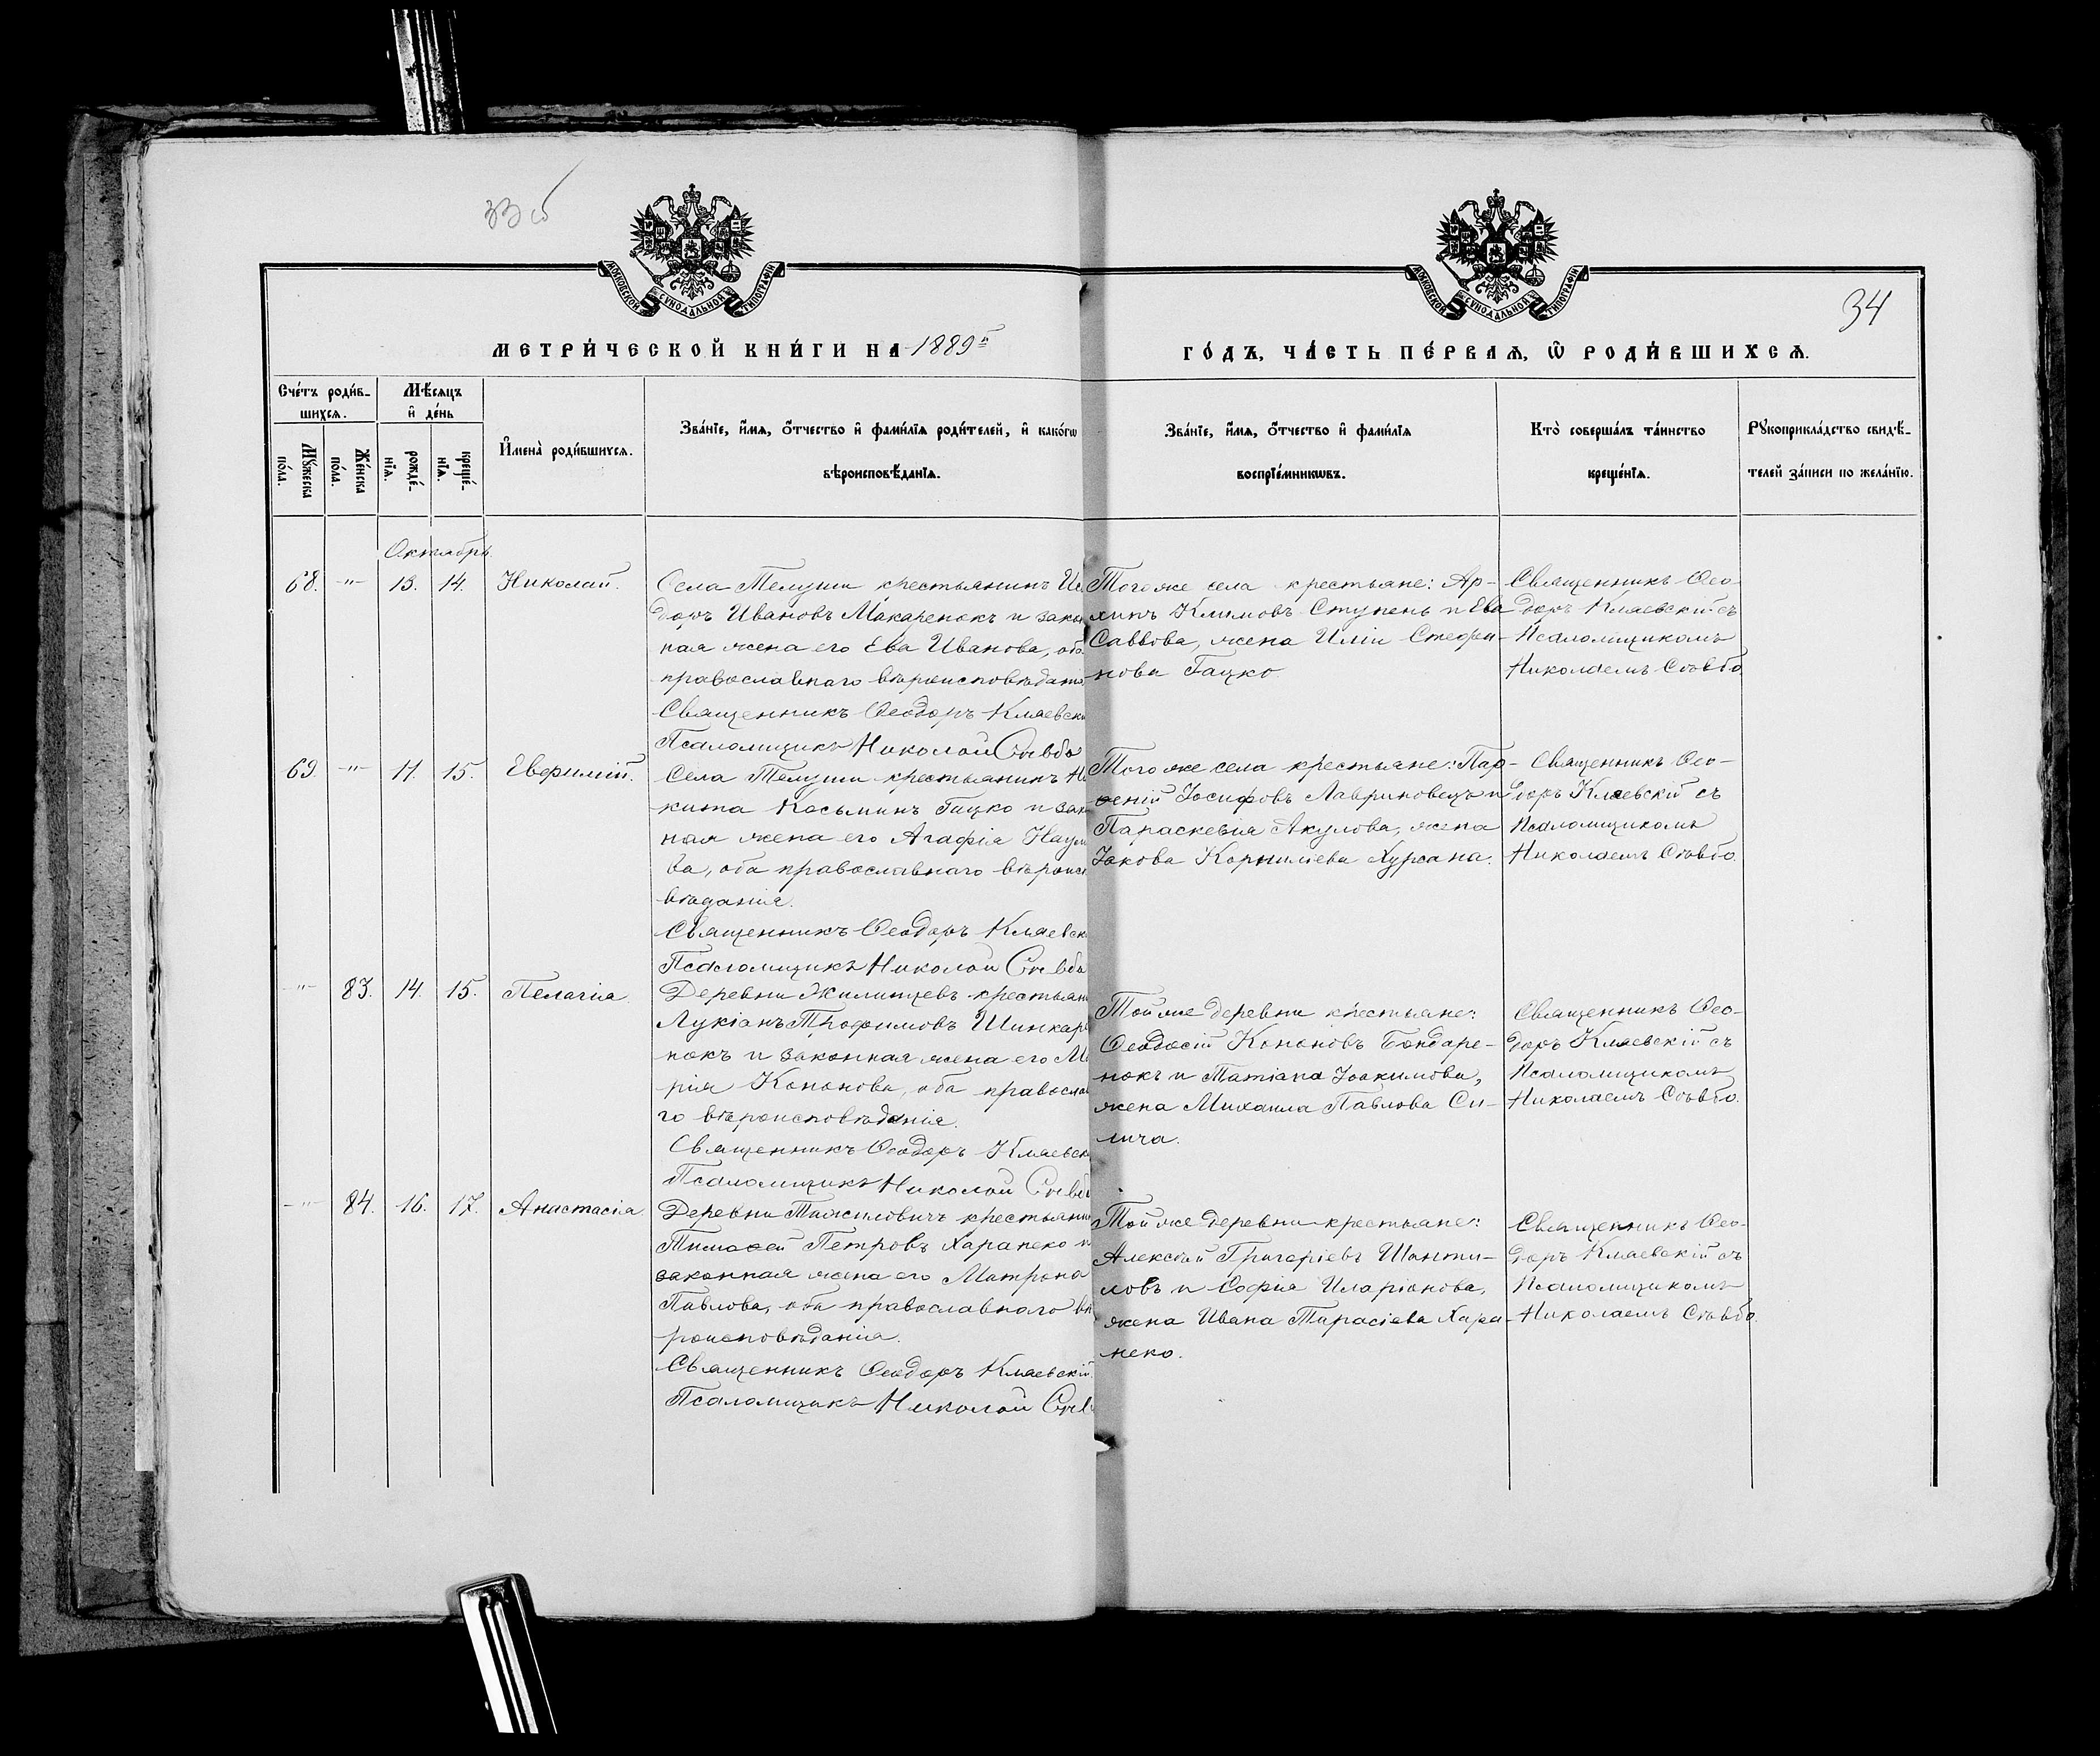 33 об
34
МОСКОВСКОЙ СѴНОДАЛЬНОЙ ТИПОГРАФІИ
МОСКОВСКОЙ СѴНОДАЛЬНОЙ ТИПОГРАФІИ
МЕТРИ́ЧЕСКОЙ КНИ́ГИ НА 1889й
ГО́ДЪ, ЧА́СТЬ ПЕ́РВАЯ, Ѽ РОДИ́ВШИХСЯ.
Сче́тъ роди́в-
шихся.
Мѣ́сяцъ
и҆ де́нь
Мꙋ́жеска
по́ла.
Же́нска
по́ла.
рожде́-
нїя.
креще́-
нїя.
И҆мена̀ роди́вшихся.
Зва́нїе, и҆́мя, ѻ҆́тчество и҆ фами́лїя роди́телей, и҆ како́гѡ
вѣроисповѣ́данїя.
Зва́нїе, и҆́мя, ѻ҆́тчество и҆ фами́лїя
воспрїе́мникѡвъ.
Кто̀ соверша́лъ та́инство
креще́нїя.
Рꙋкоприкла́дство свидѣ́-
телей за́писи по жела́нїю.
Октябрь.
68. -"- 13. 14. Николай.
Села Телуши крестьянинъ
доръ Ивановъ Макаренокъ и закон
ная жена его Ева Иванова, оба
православнаго вѣроисповѣданія
Священникъ Ѳеодоръ Кляевскі
Псаломщикъ Николай Стевбо
Того же села крестьяне: Ар-
хипъ Климовъ Ступень и Ева
Саввова, жена Иліи Стефа-
нова Гацко
Священникъ Ѳео-
доръ Кляевскій съ
Псаломщикомъ
Николаемъ Стѣвбо.
69. -"- 11. 15. Евфимій.
Села Телуши крестьянинъ Ни
кита Косьминъ Гацко и зак
ная жена его Агафія Наум
ва, оба православнаго вѣроисп
вѣданія.
Священникъ Ѳеодоръ Кляевск
Псаломщикъ Николай Стевбо
Того же села крестьяне: Пар-
ѳеній Іосифовъ Лавриновецъ и
Параскевія Акулова, жена
Іакова Корниліева Хурсана.
Священникъ Ѳео-
доръ Кляевскій съ
Псаломщикомъ
Николаемъ Стѣвбо.
-"- 83. 14. 15. Пелагія.
Деревни Жилинцевъ крестьян
Лукіанъ Трофимовъ Шинкаре
нокъ и законная жена его Ма
рія Кононова, оба православ
го вѣроисповѣданія.
Священникъ Ѳеодоръ Кляевск
Псаломщикъ Николай Стевб
Той же деревни крестьяне:
Ѳеодосій Кононовъ Бондаре-
нокъ и Татіана Іоакимова,
жена Михаила Павлова Си-
лича.
Священникъ Ѳео-
доръ Кляевскій съ
Псаломщикомъ
Николаемъ Стѣвбо.
-"- 84. 16. 17. Анастасія
Деревни крестьянин
Тимоѳей Петровъ Харанеко и
законная жена его Матрона
Павлова, оба православнаго вѣ
роисповѣданія.
Священникъ Ѳеодоръ Кляевскій
Псаломщикъ Николай Стев
Той же деревни крестьяне:
Алексѣй Григоріевъ Шанти-
ловъ и Софія Иларіонова,
жена Ивана Тарасіева Хара-
неко.
Священникъ Ѳео-
доръ Кляевскій съ
Псаломщикомъ
Николаемъ Стѣвбо.